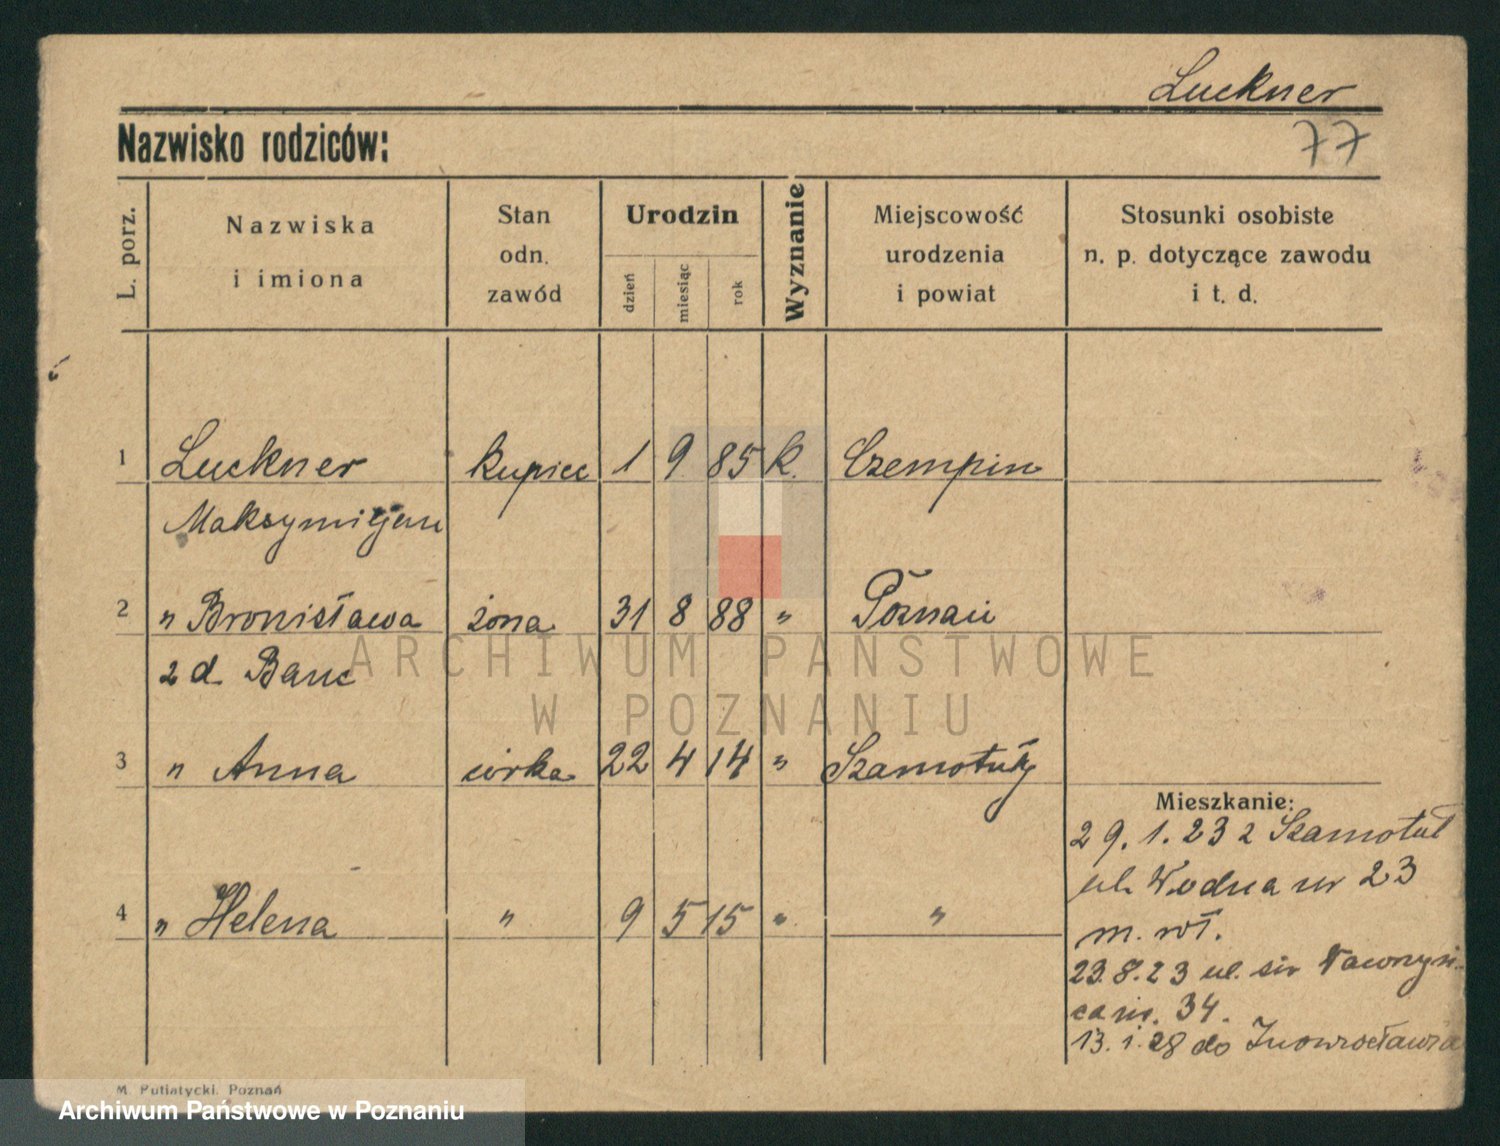 Luckner
77
Nazwisko rodziców:
L. porz.
Nazwiska
i imiona
Stan
odn.
zawód
Urodzin
dzień
miesiąc
rok
Wyznanie
Miejscowość
urodzenia
i powiat
Stosunki osobiste
n. p. dotyczące zawodu
i t. d.
1 Luckner kupiec 1 9 85 k. Czempin
Maksymiljan
2 " Bronisława żona 31 8 88 " Poznań
z d. Banc
3 " Anna córka 22 4 14 " Szamotuły
4 " Helena " 9 5 15 " "
Mieszkanie:
29.1.23 z Szamotuł
ul. Wodna nr 23
m. wł.
23.8.23 ul. św
34.
13.1.28 do Inowrocławia
M. Putiatycki, Poznań
ARCHIWUM PAŃSTWOWE
W POZNANIU
Archiwum Państwowe w Poznaniu